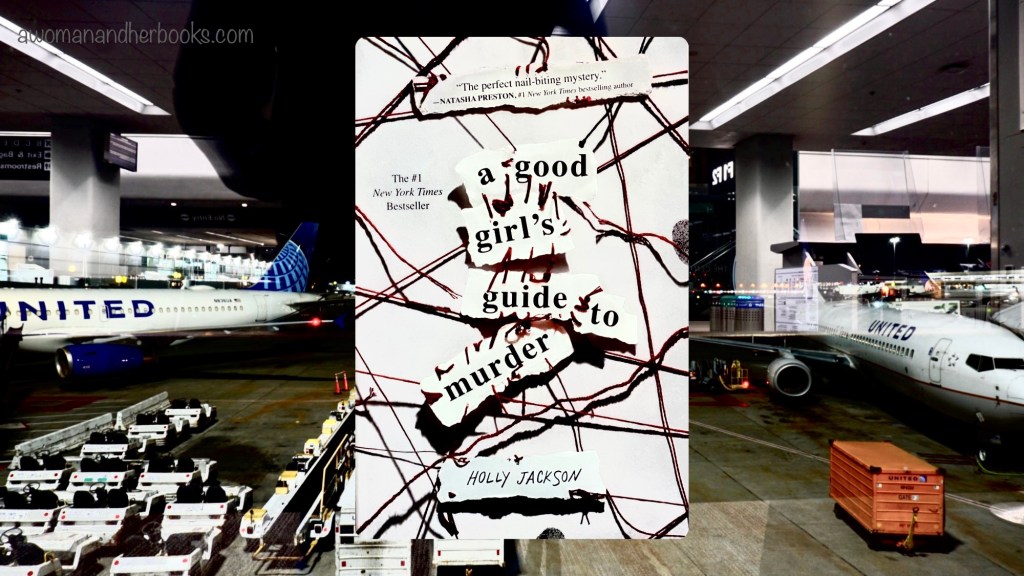 awomanandherbooks.com
"The perfect nail-biting mystery."
—NATASHA PRESTON, #1 New York Times bestselling author
The #1
New York Times
Bestseller
a good
girl's
guide
to
murder
HOLLY JACKSON
UNITED
UNITED
UNITED